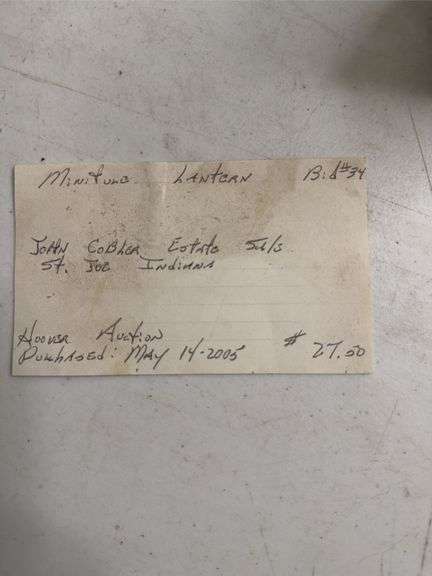 Minitule Lantern Bid #34
John Cobler Estate Sale
St. Joe Indiana
Hoover Auction
Purhased: May 14-2005 $ 27.50